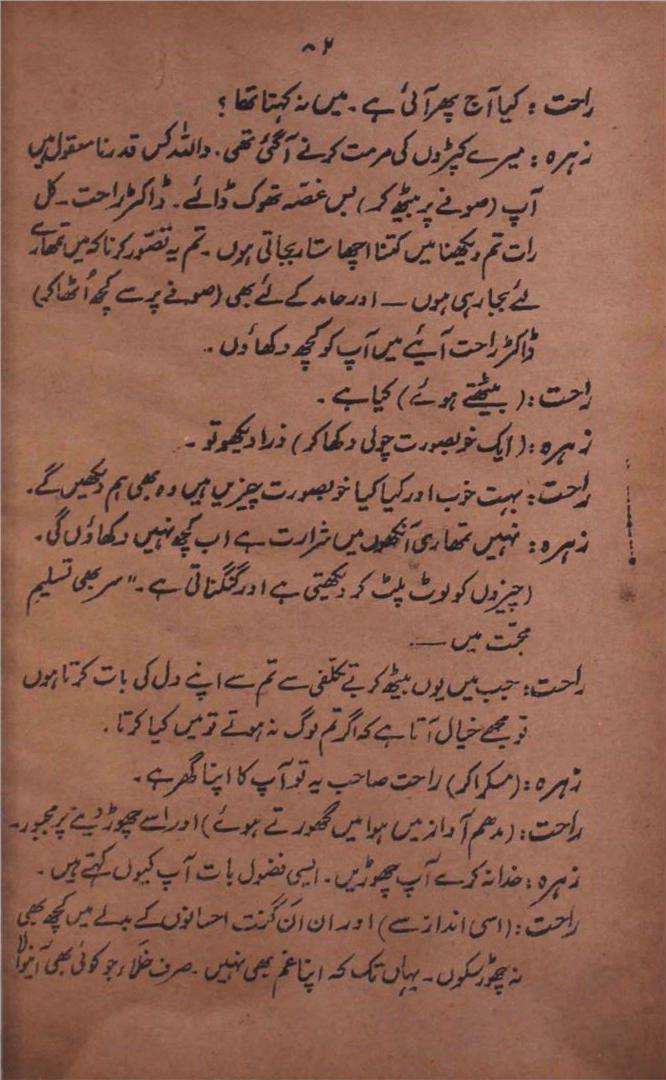 ۸۲
راحت : کیا آج پھر آئی ہے ۔ میں نہ کہتا تھا ؟
زہرہ : میرے کپڑوں کی مرمت کرنے آ گئی تھی ۔ واللہ کس قدر نامعقول ہیں
آپ (صوفے پر بیٹھ کر) بس غصّہ تھوک ڈالئے ۔ ڈاکٹر راحت ۔ کل
رات تم دیکھنا میں کتنا اچھا ستار بجاتی ہوں ۔ تم یہ تصّور کرنا کہ میں تمھارے
لئے بجا رہی ہوں — اور حامد کے لئے بھی (صوفے پر سے کچھ اُٹھا کر)
ڈاکٹر راحت آیئے میں آپ کو کچھ دکھاؤں ۔
راحت : ( بیٹھتے ہوئے ) کیا ہے ۔
زہرہ : ( ایک خوبصورت چولی دکھا کر ) ذرا دیکھو تو ۔
راحت : بہت خوب اور کیا کیا خوبصورت چیزیں ہیں وہ بھی ہم دیکھیں گے ۔
زہرہ : نہیں تمھاری آنکھوں میں شرارت ہے اب کچھ نہیں دکھاؤں گی ۔
(چیزوں کو لوٹ پلٹ کر دیکھتی ہے اور گنگناتی ہے ۔ " سر بھی تسلیمِ
محبّت میں —۔
راحت : جب میں یوں بیٹھ کر بے تکلّفی سے تم سے اپنے دل کی بات کرتا ہوں
تو مجھے خیال آتا ہے کہ اگر تم لوگ نہ ہوتے تو میں کیا کرتا ۔
زہرہ : (مسکرا کر) راحت صاحب یہ تو آپ کا اپنا گھر ہے ۔
راحت : (مدھم آواز میں ہوا میں گھورتے ہوئے) اور اسے چھوڑ دینے پر مجبور ۔
زہرہ : خدا نہ کرے آپ چھوڑیں ۔ ایسی فضول بات آپ کیوں کہتے ہیں ۔
راحت : (اسی انداز سے) اور ان اَن گنت احسانوں کے بدلے میں کچھ بھی
نہ چھوڑ سکوں ۔ یہاں تک کہ اپنا غم بھی نہیں ۔ صرف خلاء جو کوئی بھی آنیوالا